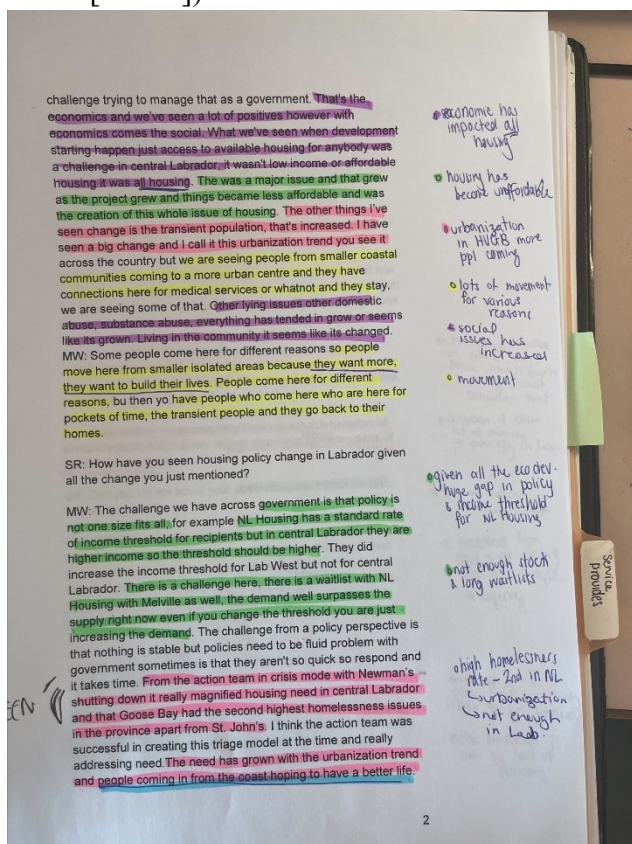 challenge trying to manage that as a government. That's the
economics and we've seen a lot of positives however with
economics comes the social. What we've seen when development
starting happen just access to available housing for anybody was
a challenge in central Labrador, it wasn't low income or affordable
housing it was all housing. The was a major issue and that grew
as the project grew and things became less affordable and was
the creation of this whole issue of housing. The other things I've
seen change is the transient population, that's increased. I have
seen a big change and I call it this urbanization trend you see it
across the country but we are seeing people from smaller coastal
communities coming to a more urban centre and they have
connections here for medical services or whatnot and they stay,
we are seeing some of that. Other lying issues other domestic
abuse, substance abuse, everything has tended in grow or seems
like its grown. Living in the community it seems like its changed.
MW: Some people come here for different reasons so people
move here from smaller isolated areas because they want more,
they want to build their lives. People come here for different
reasons, bu then yo have people who come here who are here for
pockets of time, the transient people and they go back to their
homes.
SR: How have you seen housing policy change in Labrador given
all the change you just mentioned?
MW: The challenge we have across government is that policy is
not one size fits all, for example NL Housing has a standard rate
of income threshold for recipients but in central Labrador they are
higher income so the threshold should be higher. They did
increase the income threshold for Lab West but not for central
Labrador. There is a challenge here, there is a waitlist with NL
Housing with Melville as well, the demand well surpasses the
supply right now even if you change the threshold you are just
increasing the demand. The challenge from a policy perspective is
that nothing is stable but policies need to be fluid problem with
government sometimes is that they aren't so quick so respond and
it takes time. From the action team in crisis mode with Newman's
shutting down it really magnified housing need in central Labrador
and that Goose Bay had the second highest homelessness issues
in the province apart from St. John's. I think the action team was
successful in creating this triage model at the time and really
addressing need. The need has grown with the urbanization trend
and people coming in from the coast hoping to have a better life.
2
economic has
impacted all
housing
housing has
become unaffordable
urbanization
in HVGB more
ppl coming
lots of movement
for various
reasons
social
issues has
increased
movement
given all the eco dev.
huge gap in policy
& income threshold
for NL Housing
not enough stock
& long waitlists
high homelessness
rate - 2nd in NL
↳ urbanization
↳ not enough
in Lab.
Service
provides